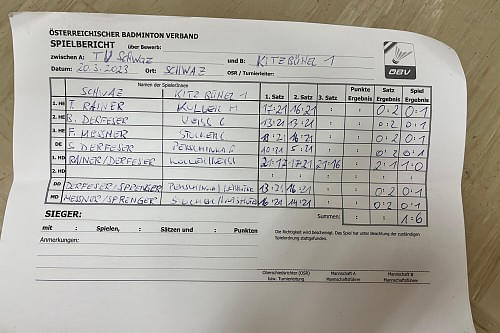 ÖSTERREICHISCHER BADMINTON VERBAND
SPIELBERICHT über Bewerb:
zwischen A: TV SCHWAZ und B: KITZBÜHEL 1
Datum: 20.3.2023 Ort: SCHWAZ OSR / Turnierleiter:
ÖBV
Namen der SpielerInnen 1. Satz 2. Satz 3. Satz Punkte Ergebnis Satz Ergebnis Spiel Ergebnis
SCHWAZ KITZBÜHEL 1
1. HE T. RAINER 17:21 16:21 : : 0:2 0:1
2. HE B. DERFESER WEISS C 13:21 13:21 : : 0:2 0:1
3. HE F. MESSNER 16:21 : : 0:2 0:1
DE S. DERFESER 10:21 5:21 : : 0:2 0:1
1. HD RAINER/DERFESER 21:17 17:21 21:16 : 2:1 1:0
2. HD : : : : : :
DD DERFESER/SPRENGER 13:21 16:21 : : 0:2 0:1
MD MESSNER/SPRENGER 16:21 14:21 : : 0:2 0:1
SIEGER: Summen: : : 1:6
mit : Spielen, : Sätzen und : Punkten
Anmerkungen:
Die Richtigkeit wird bescheinigt. Das Spiel hat unter Beachtung der zuständigen
Spielordnung stattgefunden.
Oberschiedsrichter (OSR) Mannschaft A Mannschaft B
bzw. Turnierleitung Mannschaftsführer Mannschaftsführer